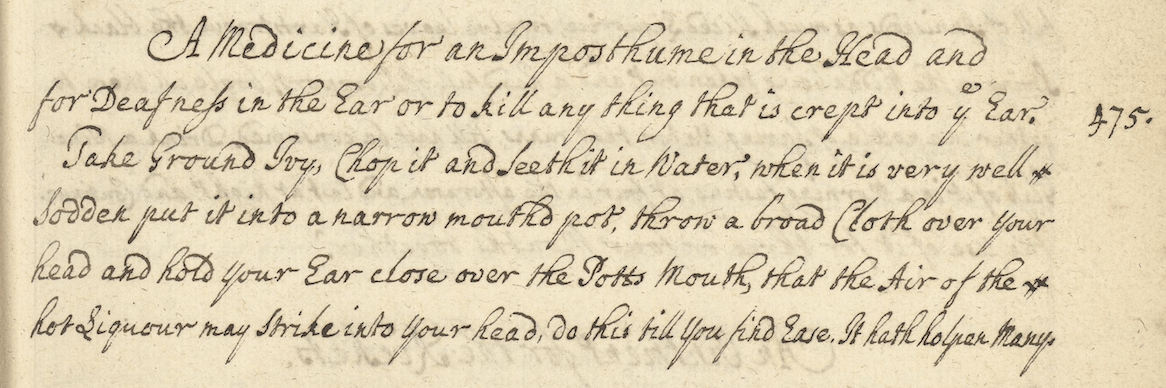 A Medicine for an Imposthume in the Head and
for Deafness in the Ear or to kill any thing that is crept into yͤ Ear. 475.
Take Ground Ivy, Chop it and Seeth it in Water, when it is very well
Sodden put it into a narrow mouthd pot, throw a broad Cloth over your
head and hold your Ear close over the Potts Mouth, that the Air of the
hot Liquour may strike into your head, do this till you find Ease. It hath holpen Many.